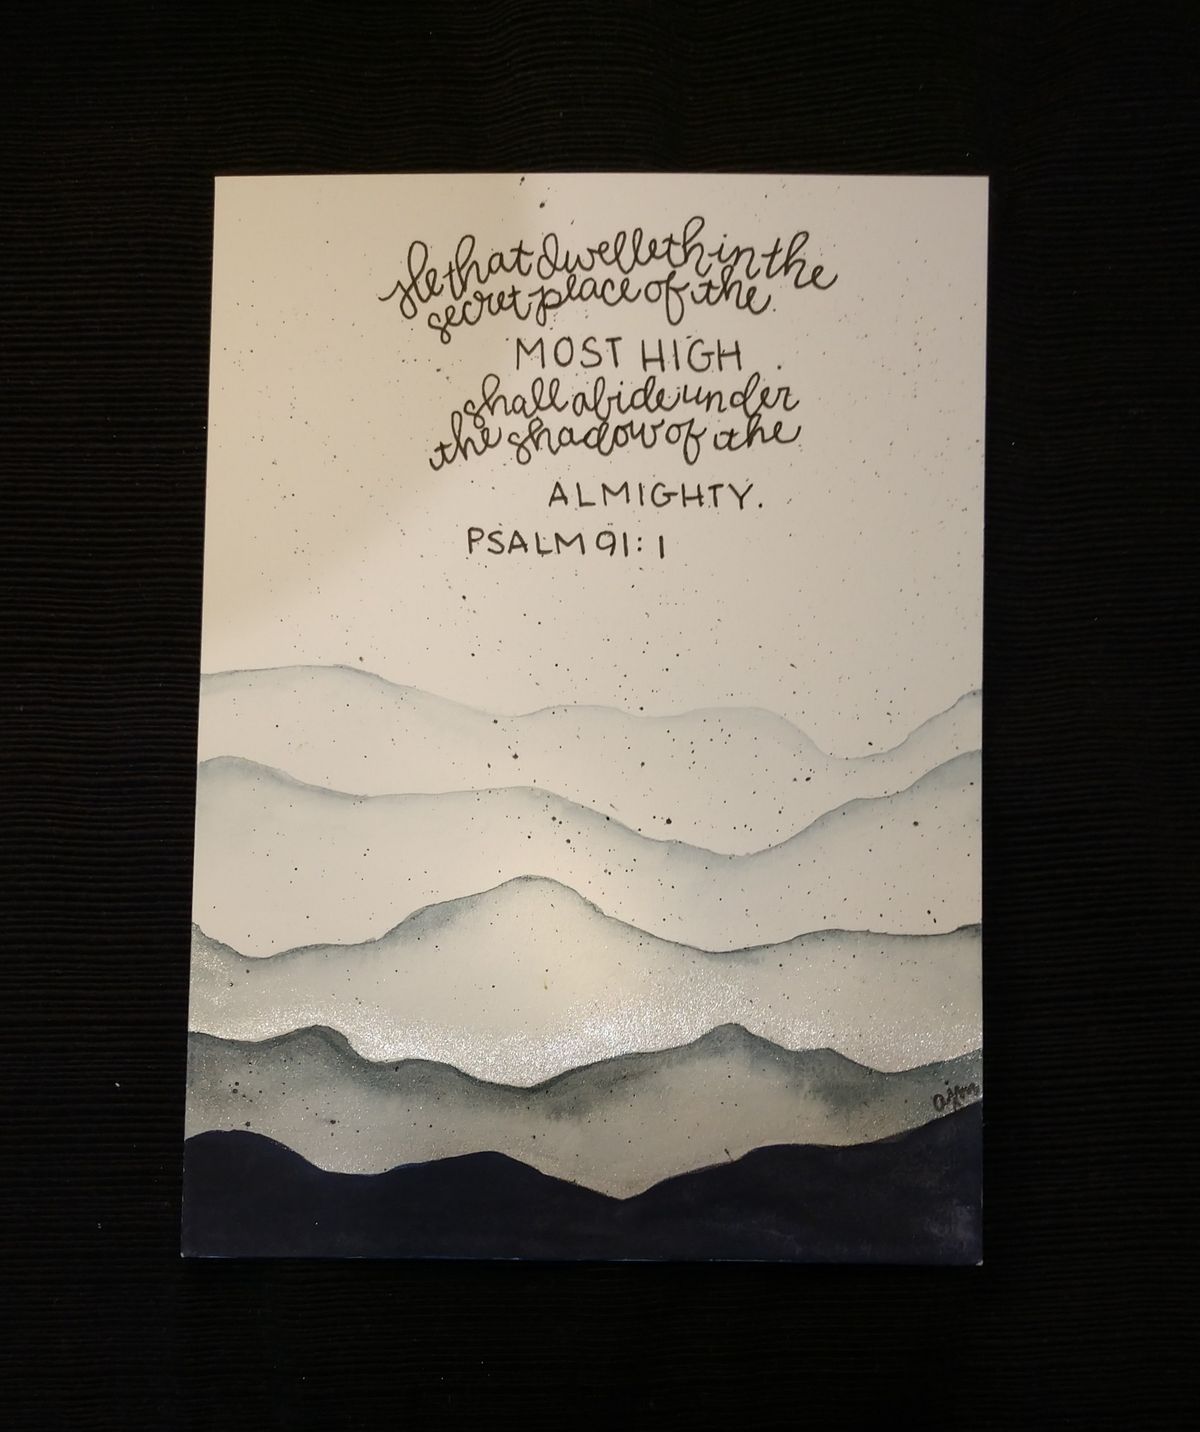 He that dwelleth in the
secret place of the
MOST HIGH
shall abide under
the shadow of the
ALMIGHTY.
PSALM 91:1